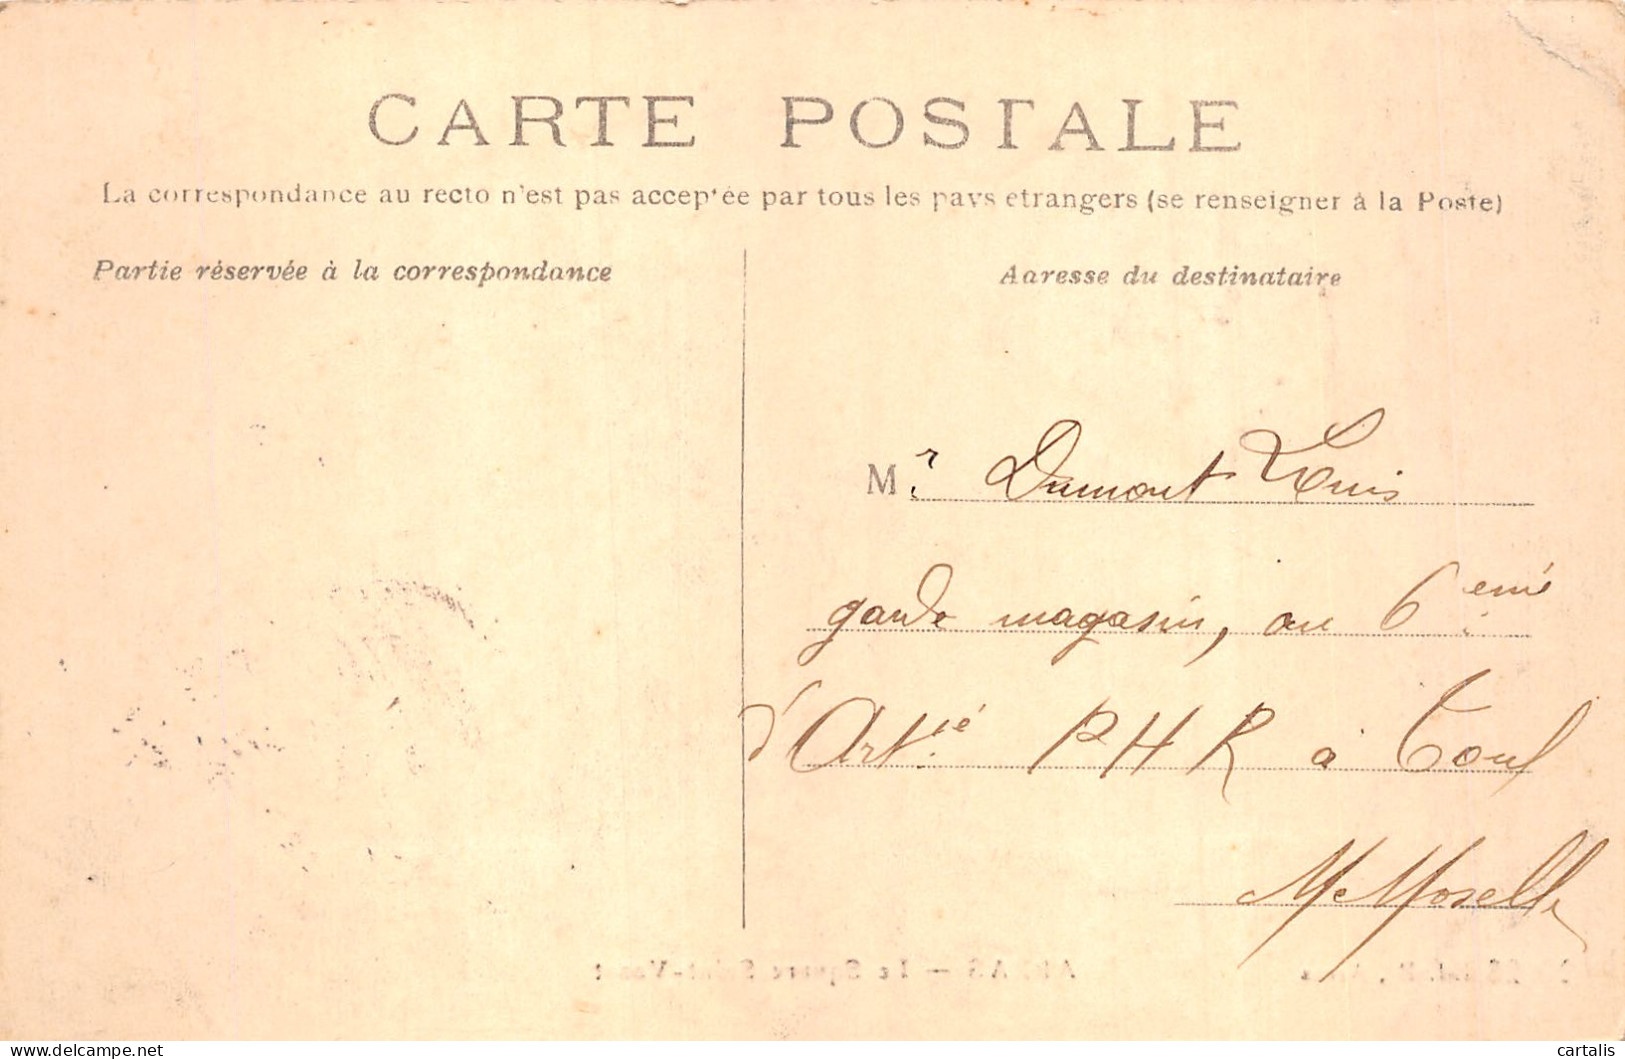 CARTE POSTALE
La correspondance au recto n'est pas acceptée par tous les pays etrangers (se renseigner à la Poste)
Partie réservée à la correspondance
Adresse du destinataire
Mr Dumont Louis
garde magasin, au 6eme
d'Artie P H R à Toul
Mte Moselle
cartalis